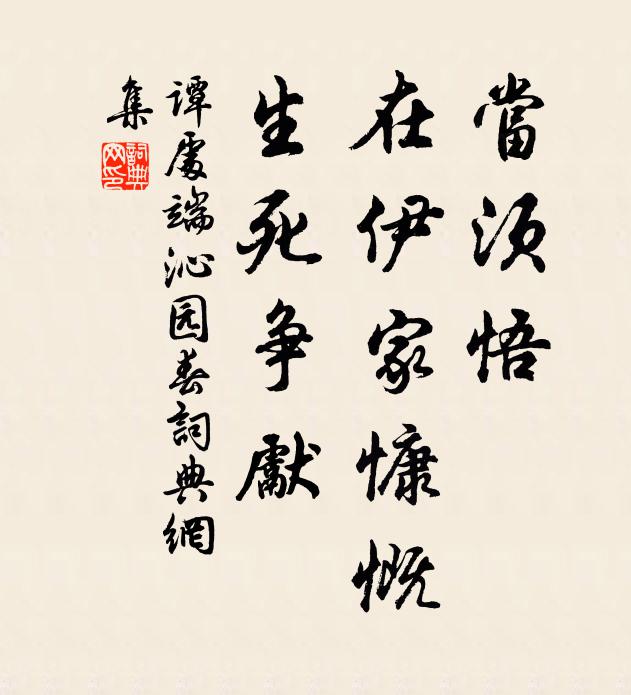 當須悟
在伊家慷慨
生死争獻
谭處端沁园春詞典網
集
詞典
网印